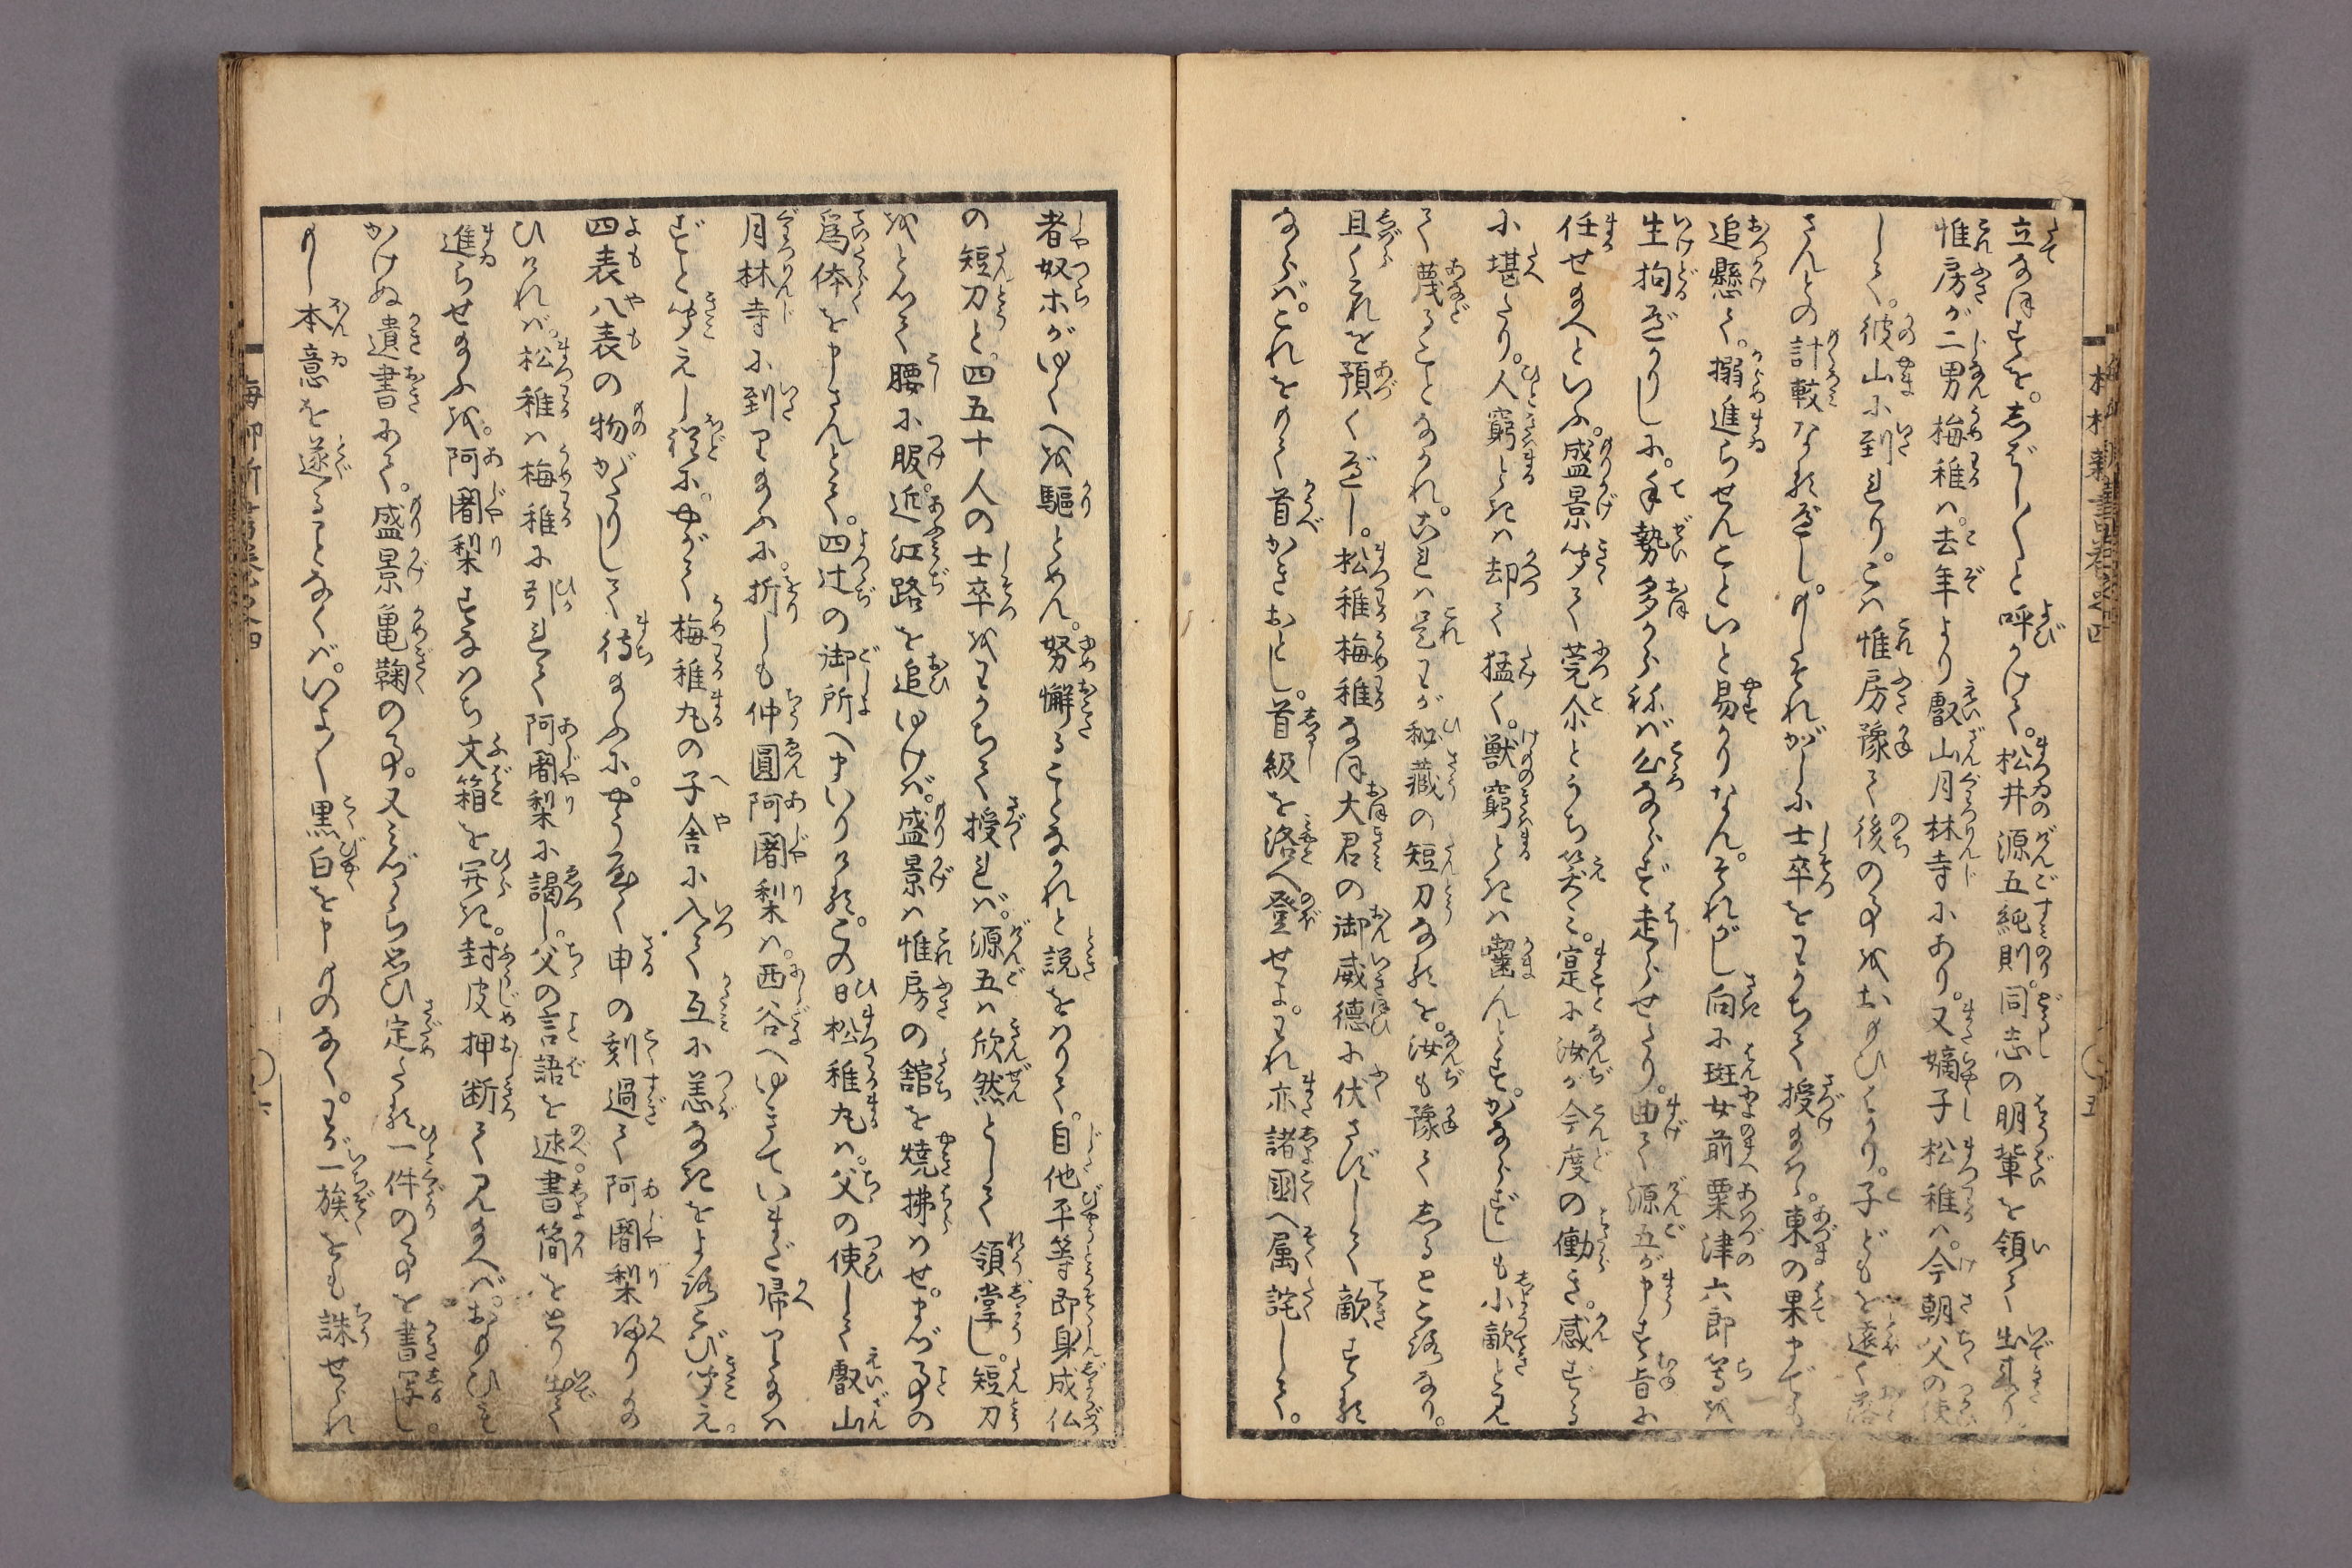 立なほすを。しばし〳〵と呼かけて。松井源五純則。同志の朋輩を領て出来り
惟房が二男梅稚は。去年より叡山月林寺にあり。又嫡子松稚は。今朝父の使
して。彼山に到れり。こは惟房豫て後の事をおもひてなり。子どもを遠く落
さんとの計較なるべし。もしそれがしに士卒をわかちて授給はゞ。東の果までも
追懸て。搦進らせんこといと易かりなん。それがし向に班女前粟津六郎等を
生拘べかりしに。手勢多からねば公ならず走らせたり。曲て源五が申す旨に
任せ給へといふ。盛景聞て莞尒とうち笑み。寔に汝が今度の働き。感ずる
に堪たり。人窮ときは却て猛く。獣窮ときは囓んとす。かならずしも小敵と見
て蔑ることなかれ。これは是わが秘蔵の短刀なるを。汝も豫てしるところなり。
且くこれを預くべし。松稚梅稚なほ大君の御威徳に伏さずして敵する
ならば。これをもて首かきおとし。首級を洛へ登せよ。われ亦諸国へ属詫して。
者奴ホがゆくへを駆とめん。努懈ることなかれと説をはりて。自他平等即身成仏
の短刀と。四五十人の士卒をわかちて授れば。源五は欣然として領掌し。短刀
をとつて腰に服。近江路を追ゆけば。盛景は惟房の舘を焼拂はせ。まづ事の
為体を申さんとて。四辻の御所へまいりける。この日松稚丸は。父の使して叡山
月林寺に到り給ふに。折しも仲圓阿闍梨は。西谷へゆきていまだ帰り給は
ずと聞えし程に。やがて梅稚丸の子舎に入て互に恙なきをよろこび聞え。
四表八表の物がたりして待給ふに。やうやく申の刻過て阿闍梨かへり給
ひければ。松稚は梅稚に引れて阿闍梨に謁し。父の言語を述。書簡をとり出て
進らせ給ふを。阿闍梨すなはち文箱を開き。封皮押断て見給へば。おもひも
かけぬ遺書にて。盛景亀鞠の事。又みづから思ひ定たる一件の事を書写し。
もし本意を遂ることなくば。いよ〳〵黒白を申すものなく。わが一族をも誅せられ